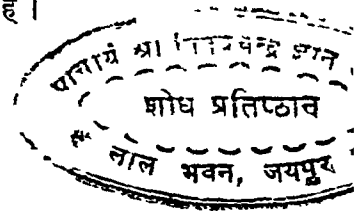 आचार्य श्री विनयचन्द्र ज्ञान
शोध प्रतिष्ठान
लाल भवन, जयपुर